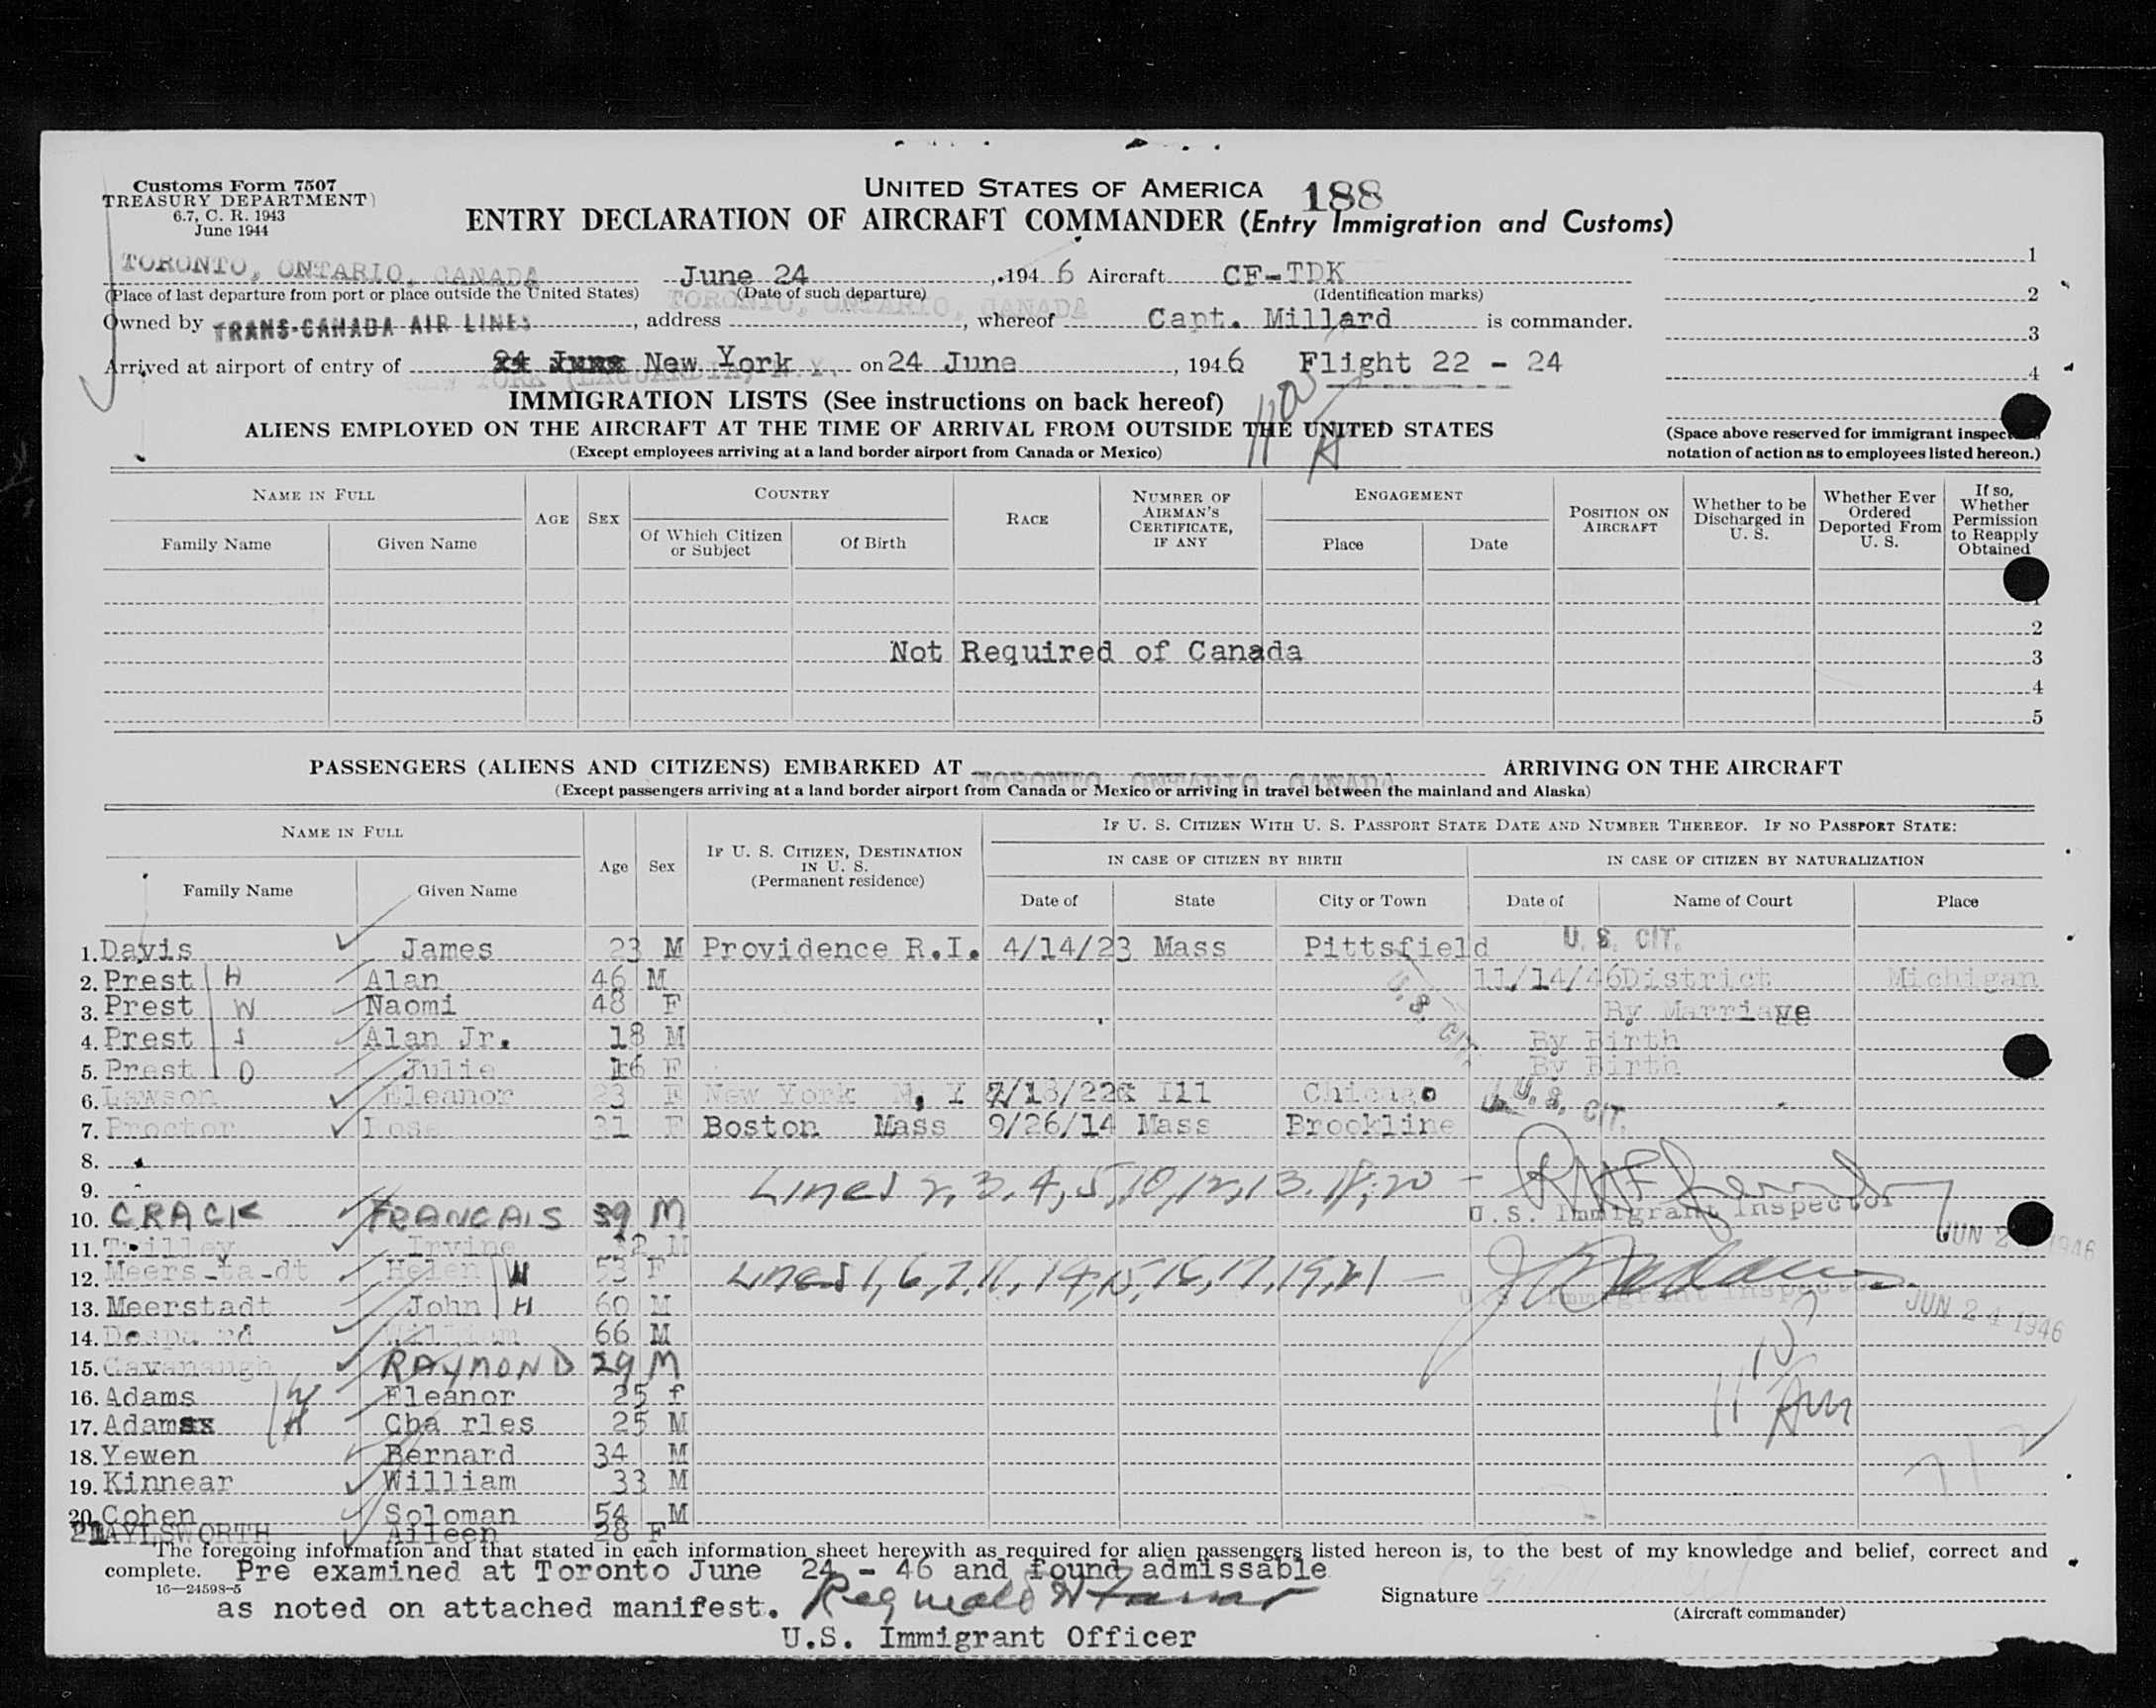 Customs Form 7507
TREASURY DEPARTMENT
6.7, C. R. 1943
June 1944
UNITED STATES OF AMERICA 188
ENTRY DECLARATION OF AIRCRAFT COMMANDER (Entry Immigration and Customs)
TORONTO, ONTARIO, CANADA June 24, 1946 Aircraft CF-TDK
(Place of last departure from port or place outside the United States) (Date of such departure) (Identification marks)
TORONTO, ONTARIO, CANADA
Owned by TRANS-CANADA AIR LINES, address , whereof Capt. Millard is commander.
Arrived at airport of entry of New York on 24 June, 1946 Flight 22 - 24
NEW YORK (LAGUARDIA)
1
2
3
4
IMMIGRATION LISTS (See instructions on back hereof)
ALIENS EMPLOYED ON THE AIRCRAFT AT THE TIME OF ARRIVAL FROM OUTSIDE THE UNITED STATES
(Except employees arriving at a land border airport from Canada or Mexico)
(Space above reserved for immigrant
notation of action as to employees listed hereon.)
NAME IN FULL
Family Name Given Name
AGE SEX
COUNTRY
Of Which Citizen or Subject
Of Birth
RACE
NUMBER OF AIRMAN'S CERTIFICATE, IF ANY
ENGAGEMENT
Place Date
POSITION ON AIRCRAFT
Whether to be Discharged in U. S.
Whether Ever Ordered Deported From U. S.
If so, Whether Permission to Reapply Obtained
1
2
Not Required of Canada 3
4
5
PASSENGERS (ALIENS AND CITIZENS) EMBARKED AT TORONTO, ONTARIO, CANADA ARRIVING ON THE AIRCRAFT
(Except passengers arriving at a land border airport from Canada or Mexico or arriving in travel between the mainland and Alaska)
NAME IN FULL
Family Name Given Name
Age Sex
IF U. S. CITIZEN, DESTINATION IN U. S. (Permanent residence)
IF U. S. CITIZEN WITH U. S. PASSPORT STATE DATE AND NUMBER THEREOF. IF NO PASSPORT STATE:
IN CASE OF CITIZEN BY BIRTH IN CASE OF CITIZEN BY NATURALIZATION
Date of State City or Town Date of Name of Court Place
1. Davis James 23 M Providence R.I. 4/14/23 Mass Pittsfield U. S. CIT.
2. Prest H Alan 46 M 11/14/46 District Michigan
3. Prest W Naomi 48 F By Marriage
4. Prest S Alan Jr. 18 M By Birth
5. Prest D Julie 16 F By Birth
U. S. CIT.
6. Lawson Eleanor 23 F New York N. Y /18/22 Ill Chicago
7. Proctor 31 F Boston Mass 9/26/14 Mass Brookline U. S. CIT.
8.
9. Lines 2, 3, 4, 5, 10, 12, 13, 18, 20 -
10. CRACK FRANCAIS 39 M
U.S. Immigrant Inspector
JUN 2 1946
11. Irvine 32 M
12. Helen W 53 F Lines 1, 6, 7, 11, 14, 15, 16, 17, 19, 21 -
13. Meerstadt John H 60 M
U. S. Immigrant Inspector
JUN 24 1946
14. William 66 M
15. Cavanaugh RAYMOND 29 M
16. Adams W Eleanor 25 f
17. Adams H Cha rles 25 M
18. Yewen Bernard 34 M
19. Kinnear William 33 M
20. Cohen Soloman 54 M
21 AYLSWORTH Aileen 28 F
The foregoing information and that stated in each information sheet herewith as required for alien passengers listed hereon is, to the best of my knowledge and belief, correct and
complete. Pre examined at Toronto June 24 - 46 and found admissable
16—24598-5
as noted on attached manifest.
Signature
(Aircraft commander)
U.S. Immigrant Officer